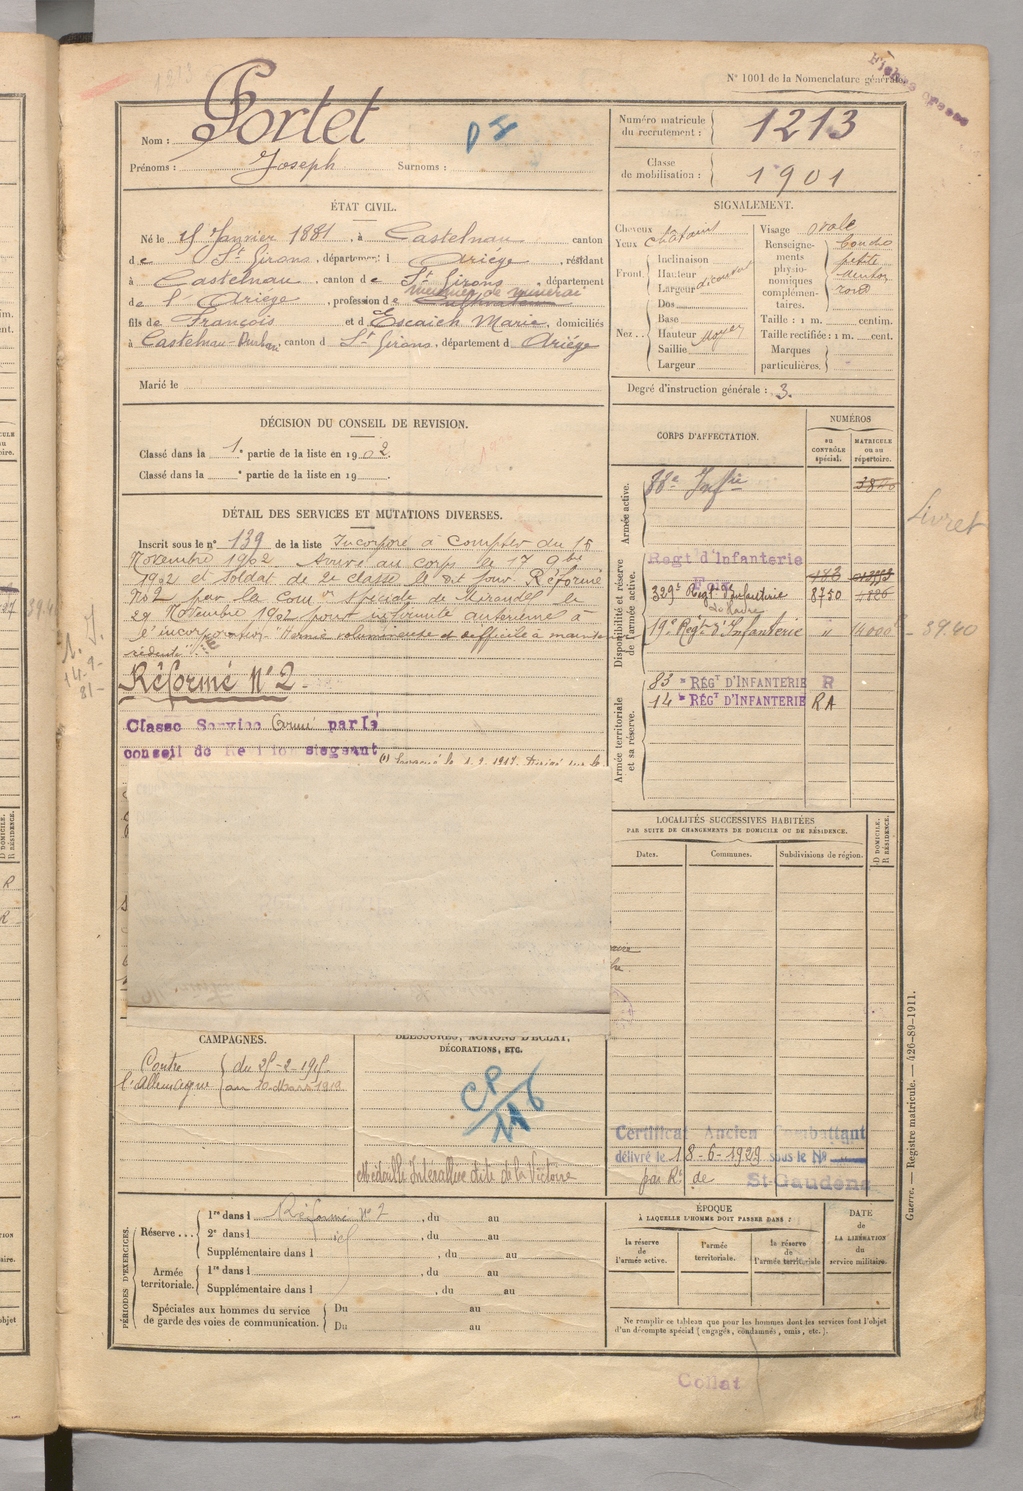 N° 1001 de la Nomenclature générale
Nom : Portet
Prénoms : Joseph Surnoms :
Numéro matricule du recrutement : 1213
Classe de mobilisation : 1901
ÉTAT CIVIL.
Né le Janvier 1881, à Castelnau canton
de St Girons, département Ariège, résidant
à Castelnau, canton de St Girons, département
de l'Ariège, profession de mineur de minerai
fils de François et d Escaich Marie, domiciliés
à Castelnau-Durban, canton d St Girons, département d Ariège
Marié le
SIGNALEMENT.
Cheveux châtain
Yeux
Front Inclinaison
Hauteur
Largeur
Dos
Base
Nez Hauteur Moyen
Saillie
Largeur
Visage ovale
Renseignements physionomiques complémentaires. bouche petite menton rond
Taille : 1 m. centim.
Taille rectifiée : 1 m. cent.
Marques particulières.
Degré d'instruction générale : 3.
DÉCISION DU CONSEIL DE REVISION.
Classé dans la 1e partie de la liste en 1902.
Classé dans la e partie de la liste en 19 .
DÉTAIL DES SERVICES ET MUTATIONS DIVERSES.
Inscrit sous le n° 139 de la liste Incorporé à compter du 15
Novembre 1902 Arrivé au corps le 17 9bre
1902 et Soldat de 2e classe le dit jour. Réformé
No2 par la Com on spéciale de Mirande le
29 Novembre 1902 pour infirmité antérieure à
l'incorporation "Hernie volumineuse et difficile à mainten
réduite"
Réformé N°2
Classe Service Armé par le
conseil de siégeant
le 1. 9. 1917. Dirigé sur le
CORPS D'AFFECTATION.
NUMÉROS
AU CONTRÔLE spécial.
MATRICULE ou au répertoire.
Armée active.
88e Infie
Disponibilité et réserve de l'armée active.
Regt d'Infanterie
Foix
329e Regt d'Infanterie 8750
19e Regt d'Infanterie " 14000
39.40
Livret
Armée territoriale et sa réserve.
83e RÉGT D'INFANTERIE R
14e RÉGT D'INFANTERIE RA
LOCALITÉS SUCCESSIVES HABITÉES
PAR SUITE DE CHANGEMENTS DE DOMICILE OU DE RÉSIDENCE.
Dates. Communes. Subdivisions de région.
D DOMICILE. R RÉSIDENCE.
CAMPAGNES.
Contre l'Allemagne du 25-2-1915
au 10 Mars 1919
BLESSURES, ACTIONS D'ÉCLAT,
DÉCORATIONS, ETC.
CP
Médaille Interalliée dite de la Victoire
Certificat Ancien Combattant
délivré le 18-6-1929 sous le N°
par Rt de St-Gaudens
PÉRIODES D'EXERCICES.
Réserve ... 1re dans l Réformé N°2, du au
2e dans l , du au
Supplémentaire dans l , du au
Armée territoriale. 1re dans l , du au
Supplémentaire dans l , du au
Spéciales aux hommes du service de garde des voies de communication. Du au
Du au
ÉPOQUE
À LAQUELLE L'HOMME DOIT PASSER DANS :
la réserve de l'armée active.
l'armée territoriale.
la réserve de l'armée territoriale
DATE de LA LIBÉRATION du service militaire.
Ne remplir ce tableau que pour les hommes dont les services font l'objet
d'un décompte spécial (engagés, condamnés, omis, etc.).
Guerre. — Registre matricule. — 426-89-1911.
Collat